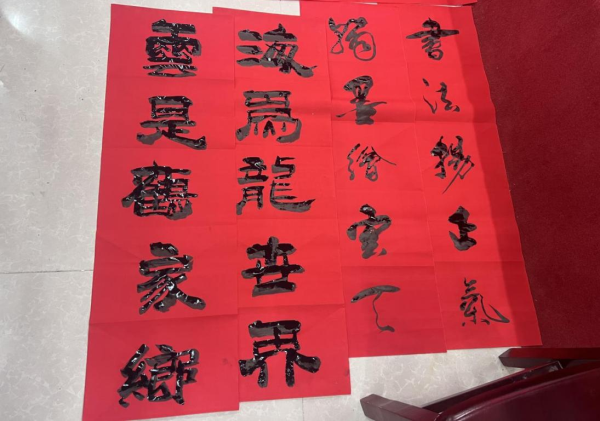 書法揚士氣
墨繪雲天
海為龍世界
雲是鶴家鄉